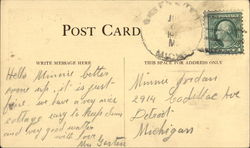 POST CARD
WRITE MESSAGE HERE
THIS SPACE FOR ADDRESS ONLY
Hello Minnie better
come up, it is just
fine. we have a very nice
cottage easy to keep clean
and very good water
with love
Mrs
Minnie Jordan
2914 Cadillac Ave
Detroit
Michigan